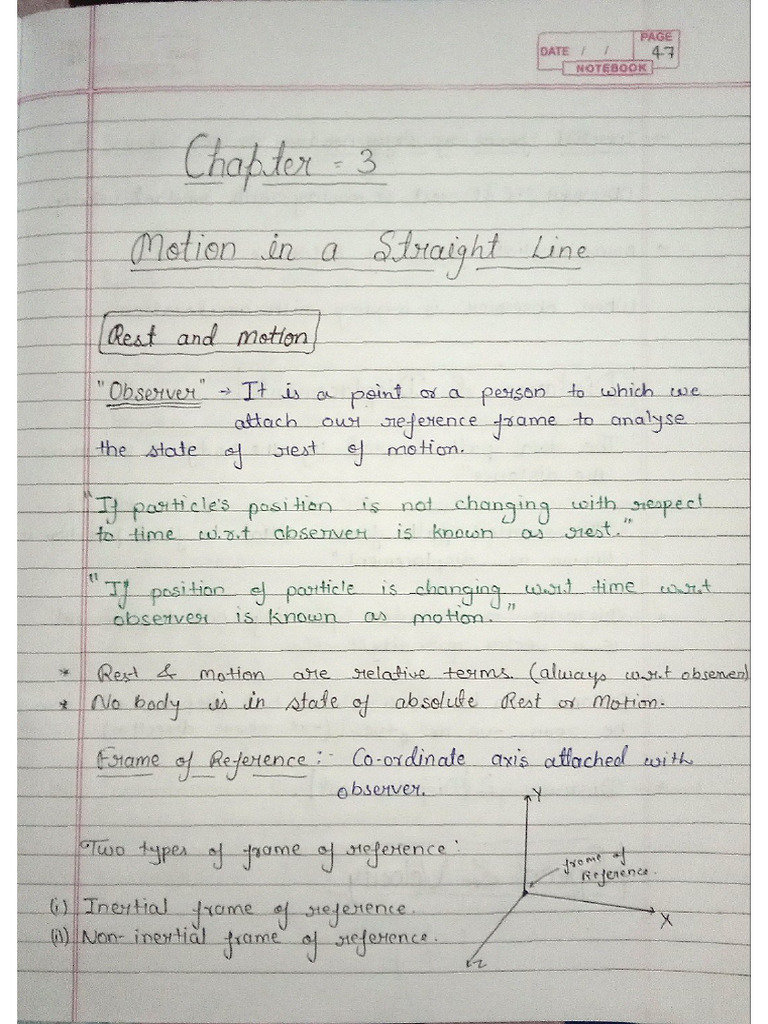 PAGE
DATE / / 47
NOTEBOOK
Chapter - 3
Motion in a Straight Line
Rest and motion
"Observer" → It is a point or a person to which we
attach our reference frame to analyse
the state of rest of motion.
"If particle's position is not changing with respect
to time w.r.t observer is known as rest."
"If position of particle is changing w.r.t time w.r.t
observer is known as motion."
* Rest & motion are relative terms. (always w.r.t observer)
* No body is in state of absolute Rest or Motion.
Frame of Reference :- Co-ordinate axis attached with
observer.
Y
Two types of frame of reference :
frame of
Reference.
(i) Inertial frame of reference.
X
(ii) Non-inertial frame of reference.
Z